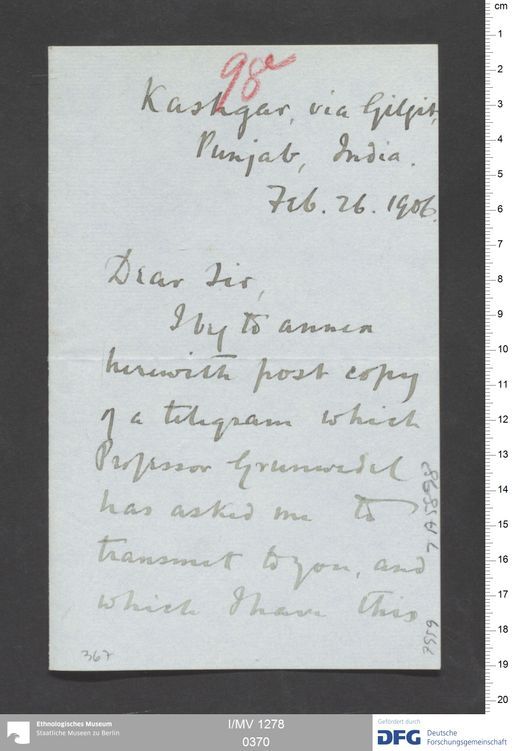 98e
Kashgar, via Gilgit,
Punjab, India.
Feb. 26. 1906.
Dear Sir,
I beg to annex
herewith post copy
of a telegram which
Professor Grunwedel
has asked me to
transmit to you, and
which I have this
367
cm
1
2
3
4
5
6
7
8
9
10
11
12
13
14
15
16
17
18
19
20
Ethnologisches Museum
Staatliche Museen zu Berlin
I/MV 1278
0370
Gefördert durch
DFG
Deutsche
Forschungsgemeinschaft